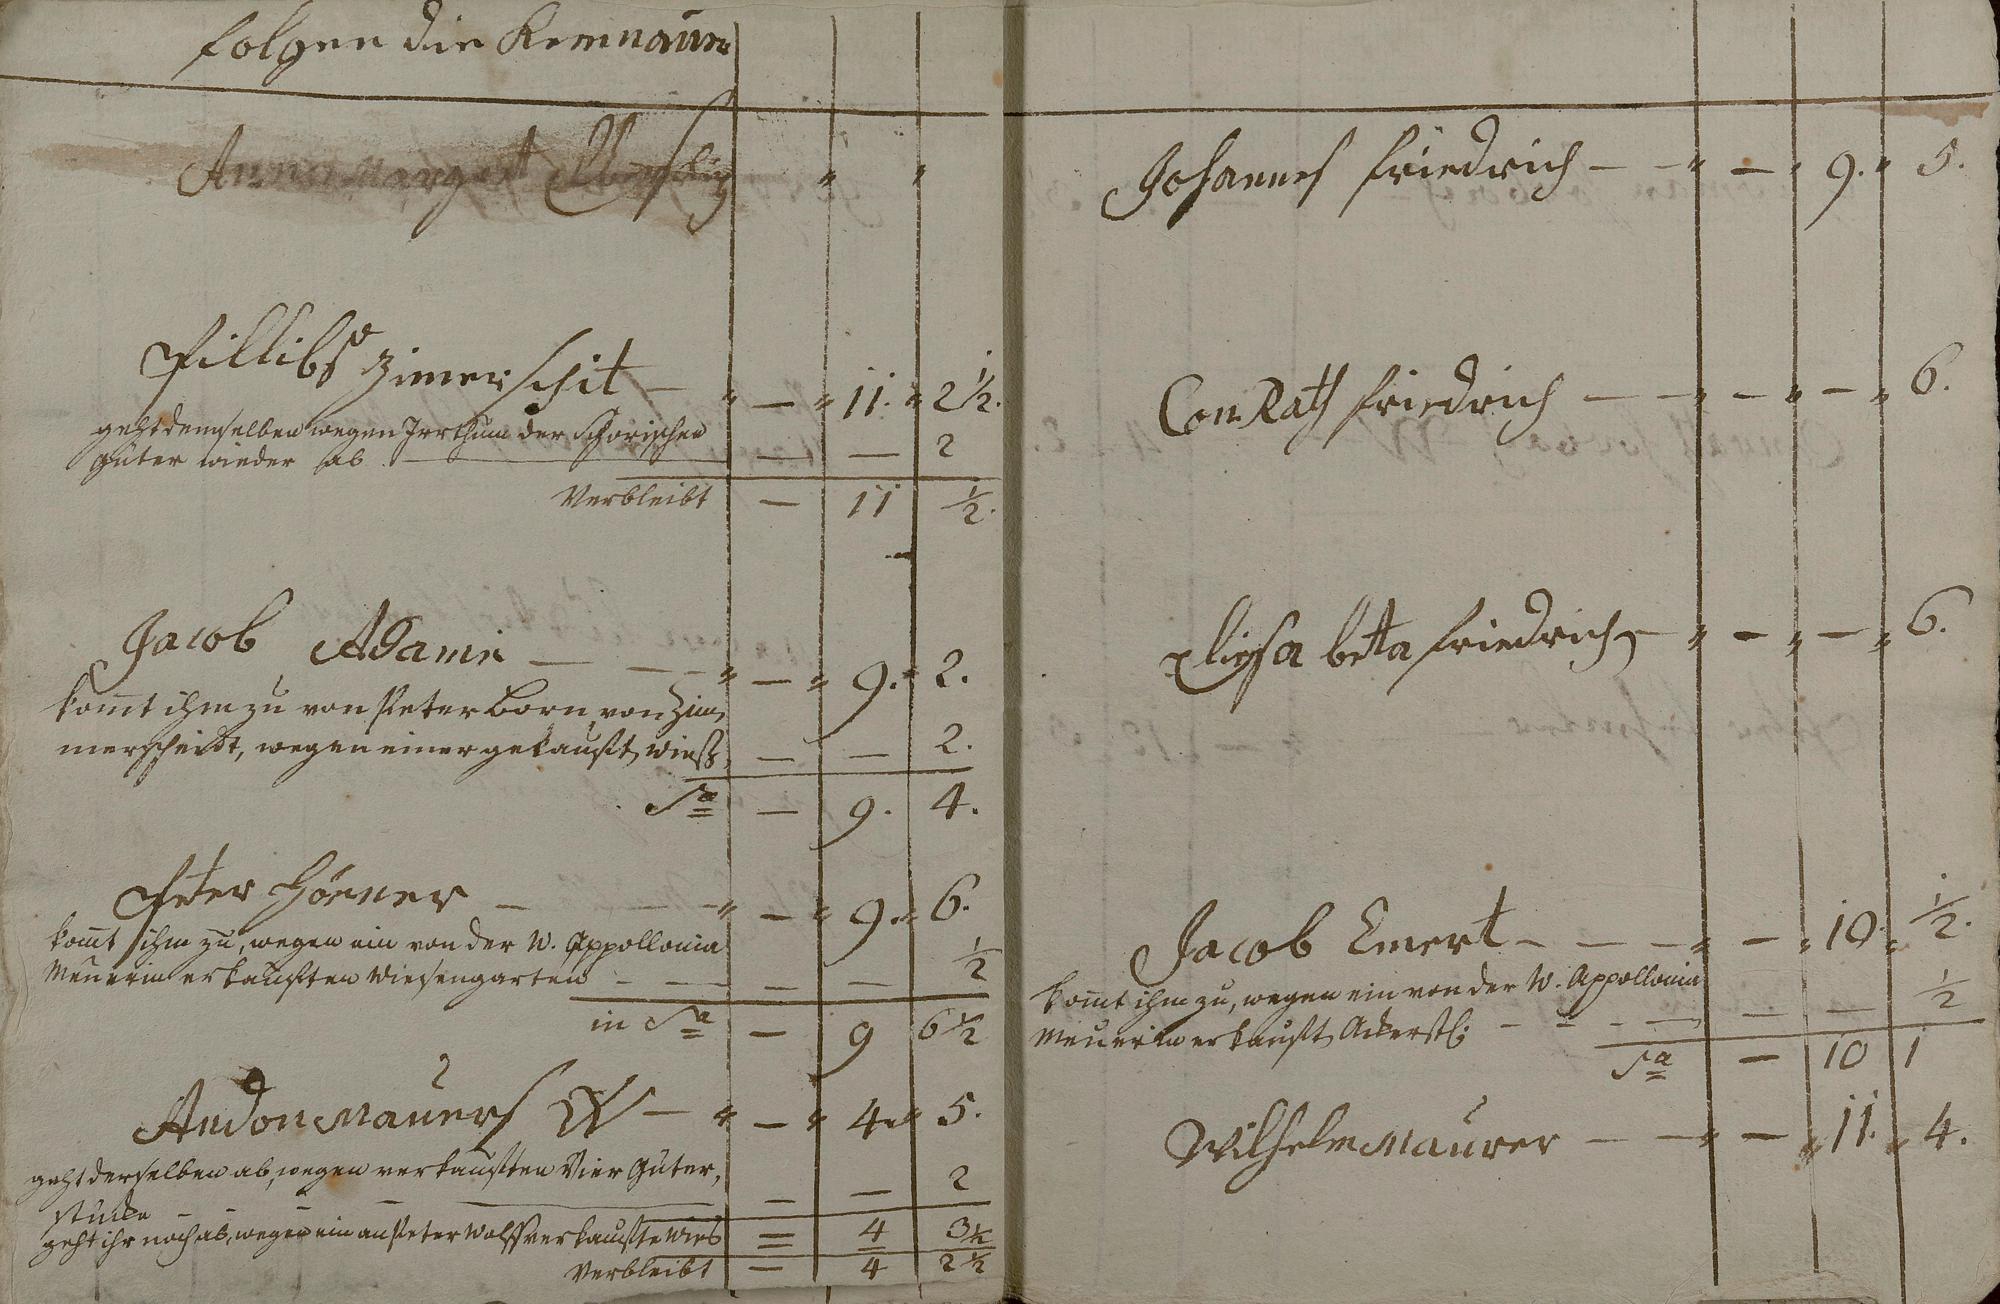 folgen die Kemnauer
Anna Margert
Fillibs Zimerschit — „ — „ 11. „ 2 ½.
geht demselben wegen Irrthum der Schorischen
güter wieder ab — — 2
Verbleibt — 11 ½.
Jacob Adami — — „ — „ 9. „ 2.
kom̄t ihm zu von Peter Born von Zim,
merscheidt, wegen einer gekauft, wieß — — 2.
Sa — 9. 4.
Peter Hörner — — — „ — „ 9. „ 6.
kom̄t ihm zu, wegen ein von der W. Appollonia
Meuerin erkauften Wiesengarten — — — — ½
in Sa — 9 6 ½
Andon Mauers W — „ — „ 4 „ 5.
geht derselben ab, wegen verkauften Vier Güter,
stücke — — — — — 2
4 3 ½
geht ihr noch ab, wegen ein an Peter Wolff verkaufte Wies
Verbleibt — 4 2 ½
Johannes Friedrich — — „ — „ 9. „ 5.
ConRath Friedrich — — „ — „ — „ 6.
Eliesa beta Friedrich — „ — „ — „ 6.
Jacob Emert — — — „ — „ 10. „ ½.
kom̄t ihm zu, wegen ein von der W. Appollonia
Meuerin erkauft, Ackerst: — — — — — — ½
Sa — 10 1
Wilhelm Maurer — — „ — „ 11. „ 4.